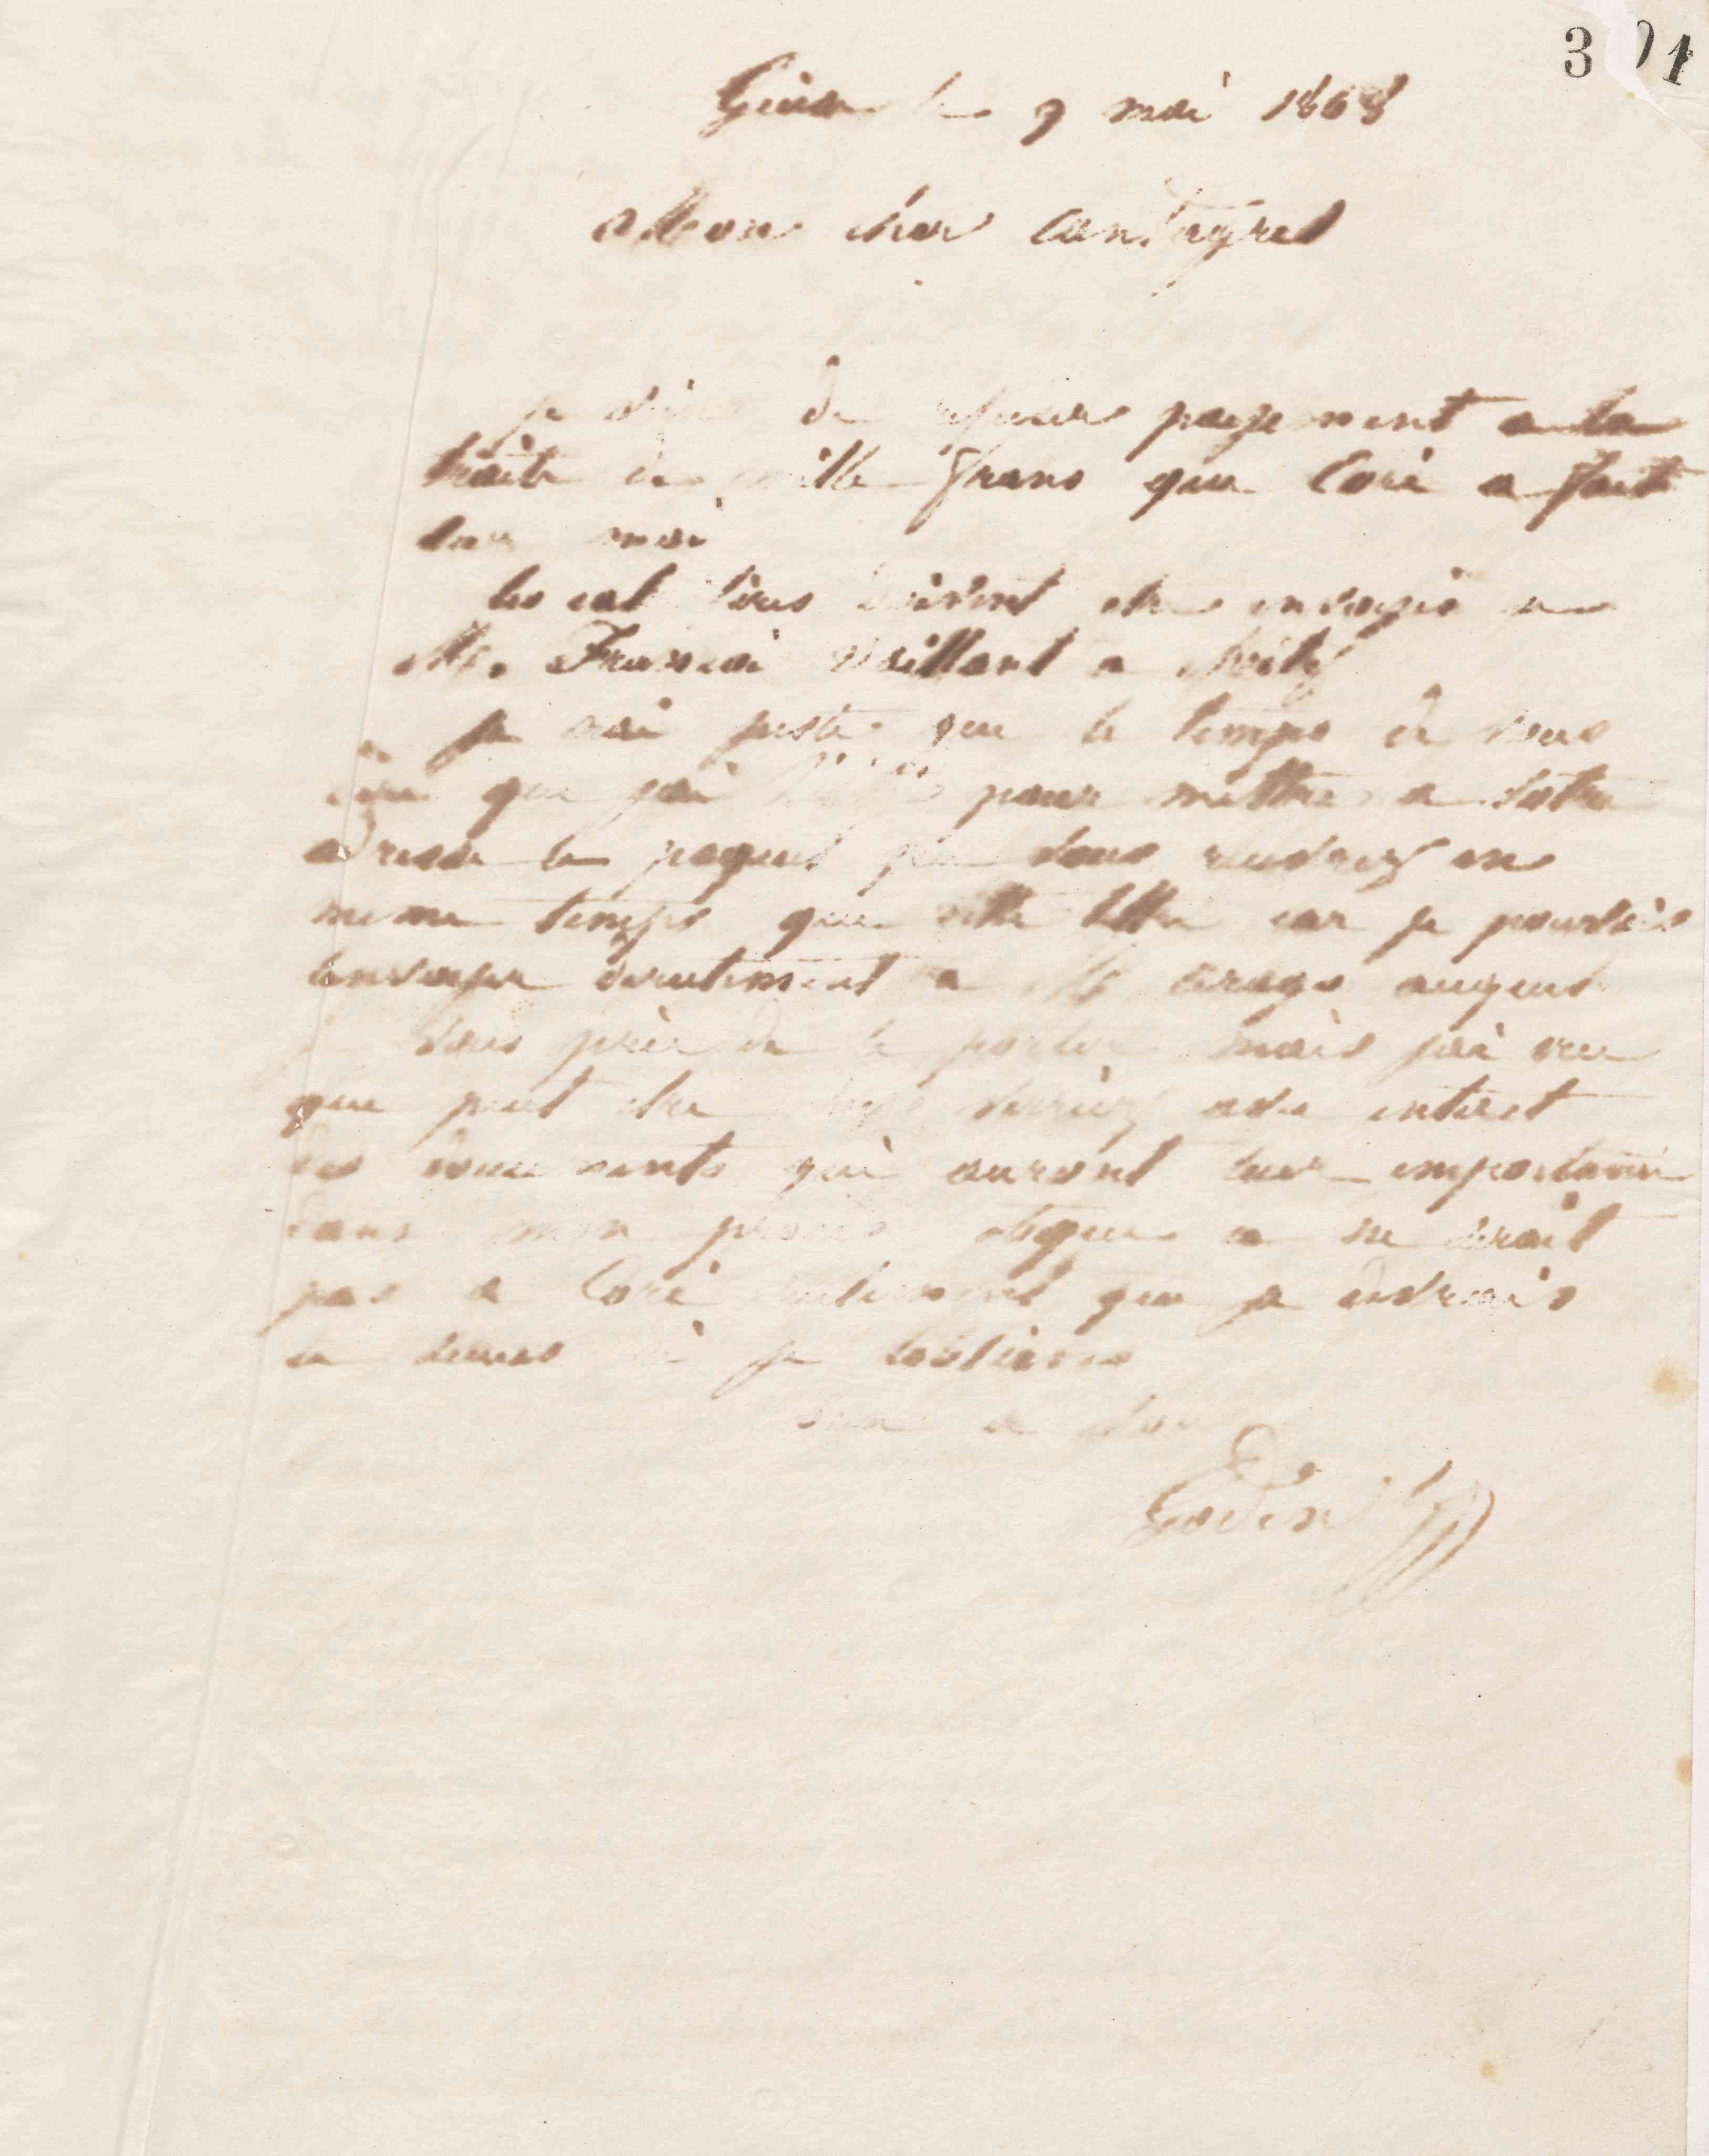 301
Guise le 9 mai 1868
Mon cher Cantagrel
je viens de refuser payement a la
traite de mille frans que Coré a fait
sur moi
les doivent etre envoyé a
Mr. Francoi Vaillant a
je nai juste que le temps de vous
dire que jai pour mettre a votre
adresse le paquet que vous recevrez en
meme temps que cette lettre car je pourais
lenvoyer directement a Mr arago auquel
je vous prie de le porter mais jai vu
que peut etre vous verriez avec interet
des documents qui auront leur importance
dans mon procès a ne serait
pas a Coré seulement que je
la si je
tout a vous
Godin